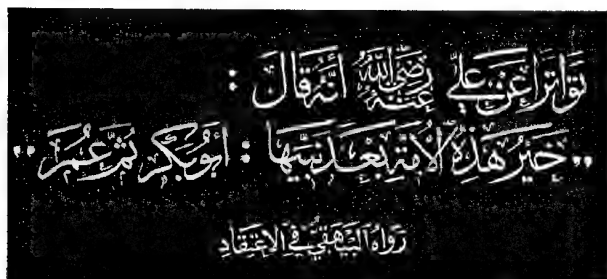 تَوَاتَرَ عَنْ عَلِيٍّ رَضِيَ اللهُ عَنْهُ أَنَّهُ قَالَ :
" خَيْرُ هَذِهِ الْأُمَّةِ بَعْدَ نَبِيِّهَا : أَبُو بَكْرٍ ثُمَّ عُمَرُ "
رَوَاهُ الْبَيْهَقِيُّ فِي الِاعْتِقَادِ